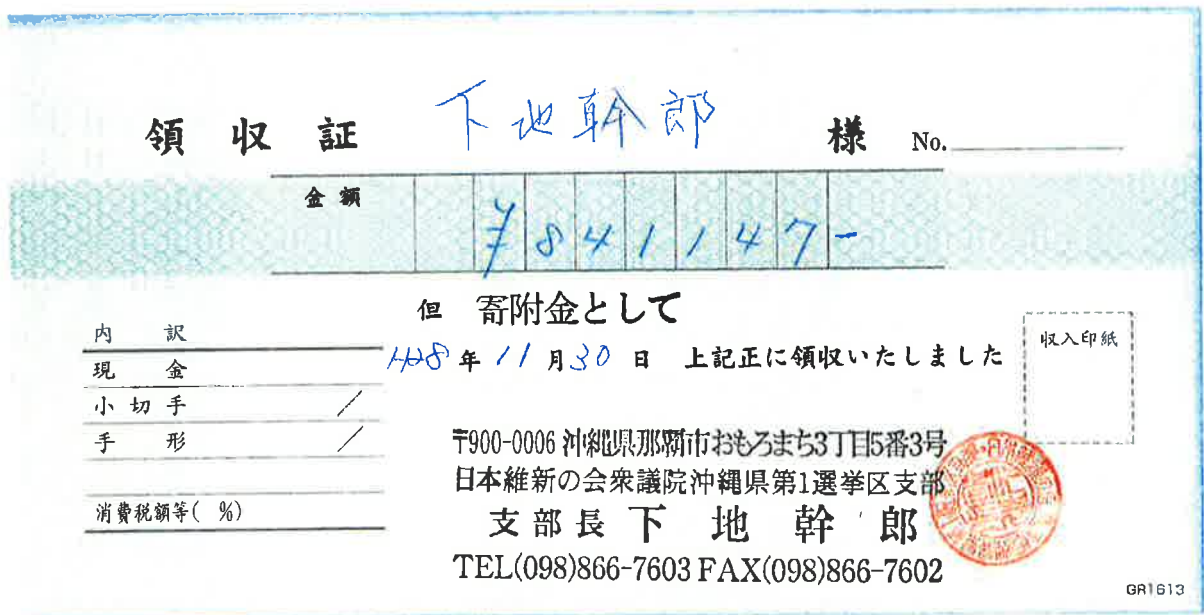 領収証 下地幹郎 様 No.
金額 ¥841147-
但 寄附金として
H28年11月30日 上記正に領収いたしました
収入印紙
内訳
現金
小切手 /
手形 /
消費税額等( %)
〒900-0006 沖縄県那覇市おもろまち3丁目5番3号
日本維新の会衆議院沖縄県第1選挙区支部
支部長 下地幹郎
TEL(098)866-7603 FAX(098)866-7602
GR1613